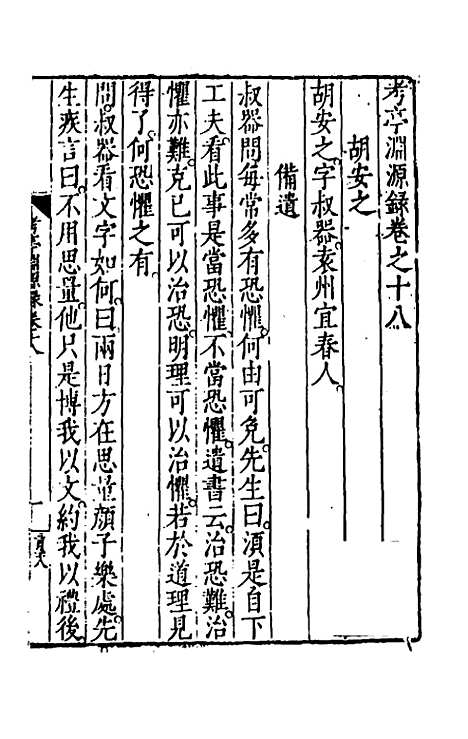 考亭淵源録卷之十八
胡安之
胡安之字叔器袁州宜春人
備遺
叔器問每常多有恐懼何由可免先生曰湏是自下
工夫看此事是當恐懼不當恐懼遺書云治恐難治
懼亦難克已可以治恐明理可以治懼若於道理見
得了何恐懼之有
問叔器看文字如何曰兩日方在思量顔子樂處先
生疾言曰不用思量他只是博我以文約我以禮後
考亭淵源録卷十八
一